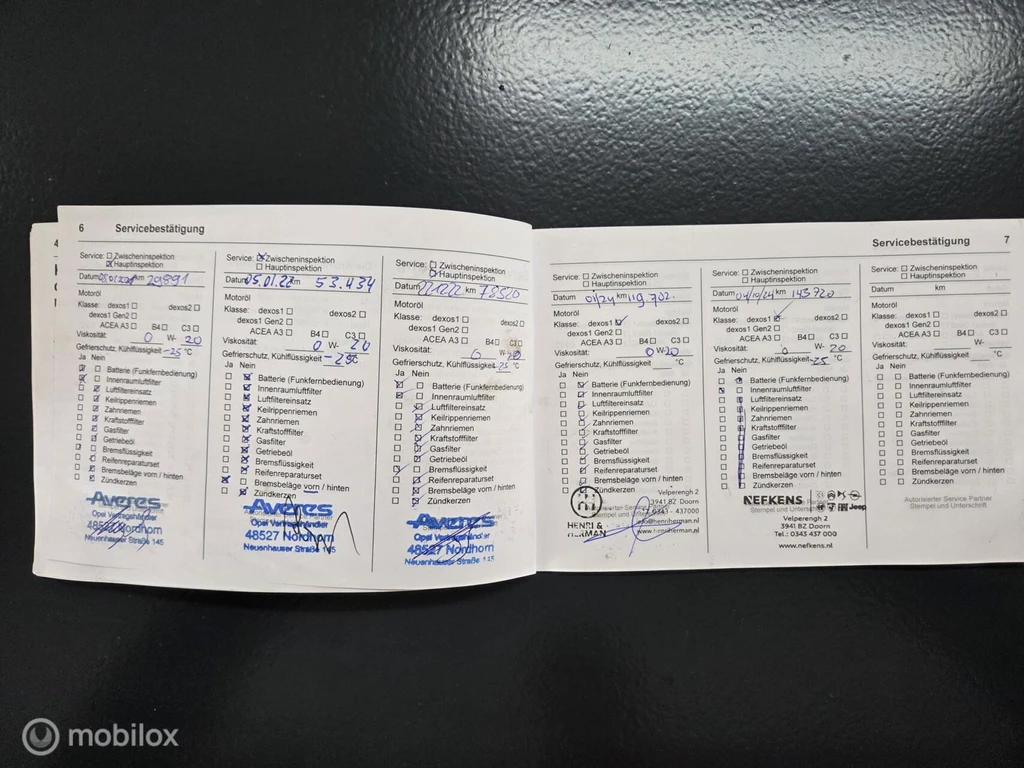 6 Servicebestätigung
Service: Zwischeninspektion
Hauptinspektion
Datum km 29891
Motoröl
Klasse: dexos1 dexos2
dexos1 Gen2
ACEA A3 B4 C3
Viskosität: 0 W- 20
Gefrierschutz, Kühlflüssigkeit -25 °C
Ja Nein
Batterie (Funkfernbedienung)
Innenraumluftfilter
Luftfiltereinsatz
Keilrippenriemen
Zahnriemen
Kraftstofffilter
Gasfilter
Getriebeöl
Bremsflüssigkeit
Reifenreparaturset
Bremsbeläge vorn / hinten
Zündkerzen
Averes
Opel Vertragshändler
48527 Nordhorn
Neuenhauser Straße 145
Service: Zwischeninspektion
Hauptinspektion
Datum 05.01.22 km 53.434
Motoröl
Klasse: dexos1 dexos2
dexos1 Gen2
ACEA A3 B4 C3
Viskosität: 0 W- 20
Gefrierschutz, Kühlflüssigkeit
Ja Nein
Batterie (Funkfernbedienung)
Innenraumluftfilter
Luftfiltereinsatz
Keilrippenriemen
Zahnriemen
Kraftstofffilter
Gasfilter
Getriebeöl
Bremsflüssigkeit
Reifenreparaturset
Bremsbeläge vorn / hinten
Zündkerzen
Averes
Opel Vertragshändler
48527 Nordhorn
Neuenhauser Straße 145
Service: Zwischeninspektion
Hauptinspektion
Datum km
Motoröl
Klasse: dexos1 dexos2
dexos1 Gen2
ACEA A3 B4 C3
Viskosität: 0 W- 20
Gefrierschutz, Kühlflüssigkeit -25 °C
Ja Nein
Batterie (Funkfernbedienung)
Innenraumluftfilter
Luftfiltereinsatz
Keilrippenriemen
Zahnriemen
Kraftstofffilter
Gasfilter
Getriebeöl
Bremsflüssigkeit
Reifenreparaturset
Bremsbeläge vorn / hinten
Zündkerzen
Averes
Opel Vertragshändler
48527 Nordhorn
Neuenhauser Straße 145
Servicebestätigung 7
Service: Zwischeninspektion
Hauptinspektion
Datum 01/24 km 119.702.
Motoröl
Klasse: dexos1 dexos2
dexos1 Gen2
ACEA A3 B4 C3
Viskosität: 0 W- 20
Gefrierschutz, Kühlflüssigkeit °C
Ja Nein
Batterie (Funkfernbedienung)
Innenraumluftfilter
Luftfiltereinsatz
Keilrippenriemen
Zahnriemen
Kraftstofffilter
Gasfilter
Getriebeöl
Bremsflüssigkeit
Reifenreparaturset
Bremsbeläge vorn / hinten
Zündkerzen
HENRI & HERMAN
Velperengh 2
3941 BZ Doorn
0343 - 437000
info@henriherman.nl
henriherman.nl
Service: Zwischeninspektion
Hauptinspektion
Datum 04/10/24 km 143720
Motoröl
Klasse: dexos1 dexos2
dexos1 Gen2
ACEA A3 B4 C3
Viskosität: 0 W- 20
Gefrierschutz, Kühlflüssigkeit -25 °C
Ja Nein
Batterie (Funkfernbedienung)
Innenraumluftfilter
Luftfiltereinsatz
Keilrippenriemen
Zahnriemen
Kraftstofffilter
Gasfilter
Getriebeöl
Bremsflüssigkeit
Reifenreparaturset
Bremsbeläge vorn / hinten
Zündkerzen
NEFKENS
Jeep
Stempel und Unterschrift
Velperengh 2
3941 BZ Doorn
Tel.: 0343 437 000
www.nefkens.nl
Service: Zwischeninspektion
Hauptinspektion
Datum km
Motoröl
Klasse: dexos1 dexos2
dexos1 Gen2
ACEA A3 B4 C3
Viskosität: W-
Gefrierschutz, Kühlflüssigkeit °C
Ja Nein
Batterie (Funkfernbedienung)
Innenraumluftfilter
Luftfiltereinsatz
Keilrippenriemen
Zahnriemen
Kraftstofffilter
Gasfilter
Getriebeöl
Bremsflüssigkeit
Reifenreparaturset
Bremsbeläge vorn / hinten
Zündkerzen
Autorisierter Service Partner
Stempel und Unterschrift
mobilox